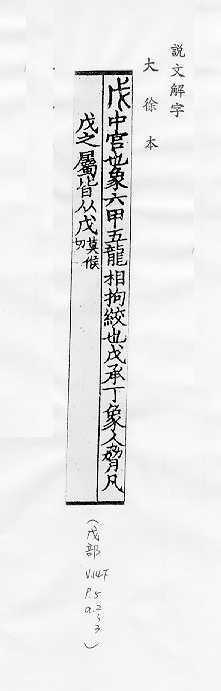 説文解字
大徐本
戊中宮也象六甲五龍相拘絞也戊承丁象人脅凡
戊之屬皆从戊莫候切
(戊部
V.14下
P.5
a.2~3)